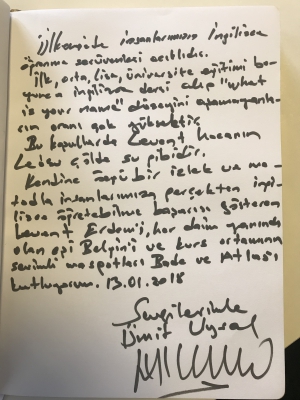 Ülkemizde insanlarımızın İngilizce
öğrenme serüvenleri acıklıdır.
İlk, orta, lise, üniversite eğitimi bo-
yunca ingilizce dersi alıp "what
is your name" düzeyini aşamayanla-
rın oranı çok yüksektir.
Bu koşullarda Levent hocanın
çölde su gibidir.
Kendine özgü bir istek ve me-
todla insanlarımıza gerçekten ingi-
lizce öğretebilme başarısı gösteren
Levent Erdem'i, her daim yanında
olan eşi Belgin'i ve kurs ortamının
sevimli maspotları Bade ve Atlas'ı
kutluyorum. 13.01.2018
Sevgilerimle
Ümit Uysal